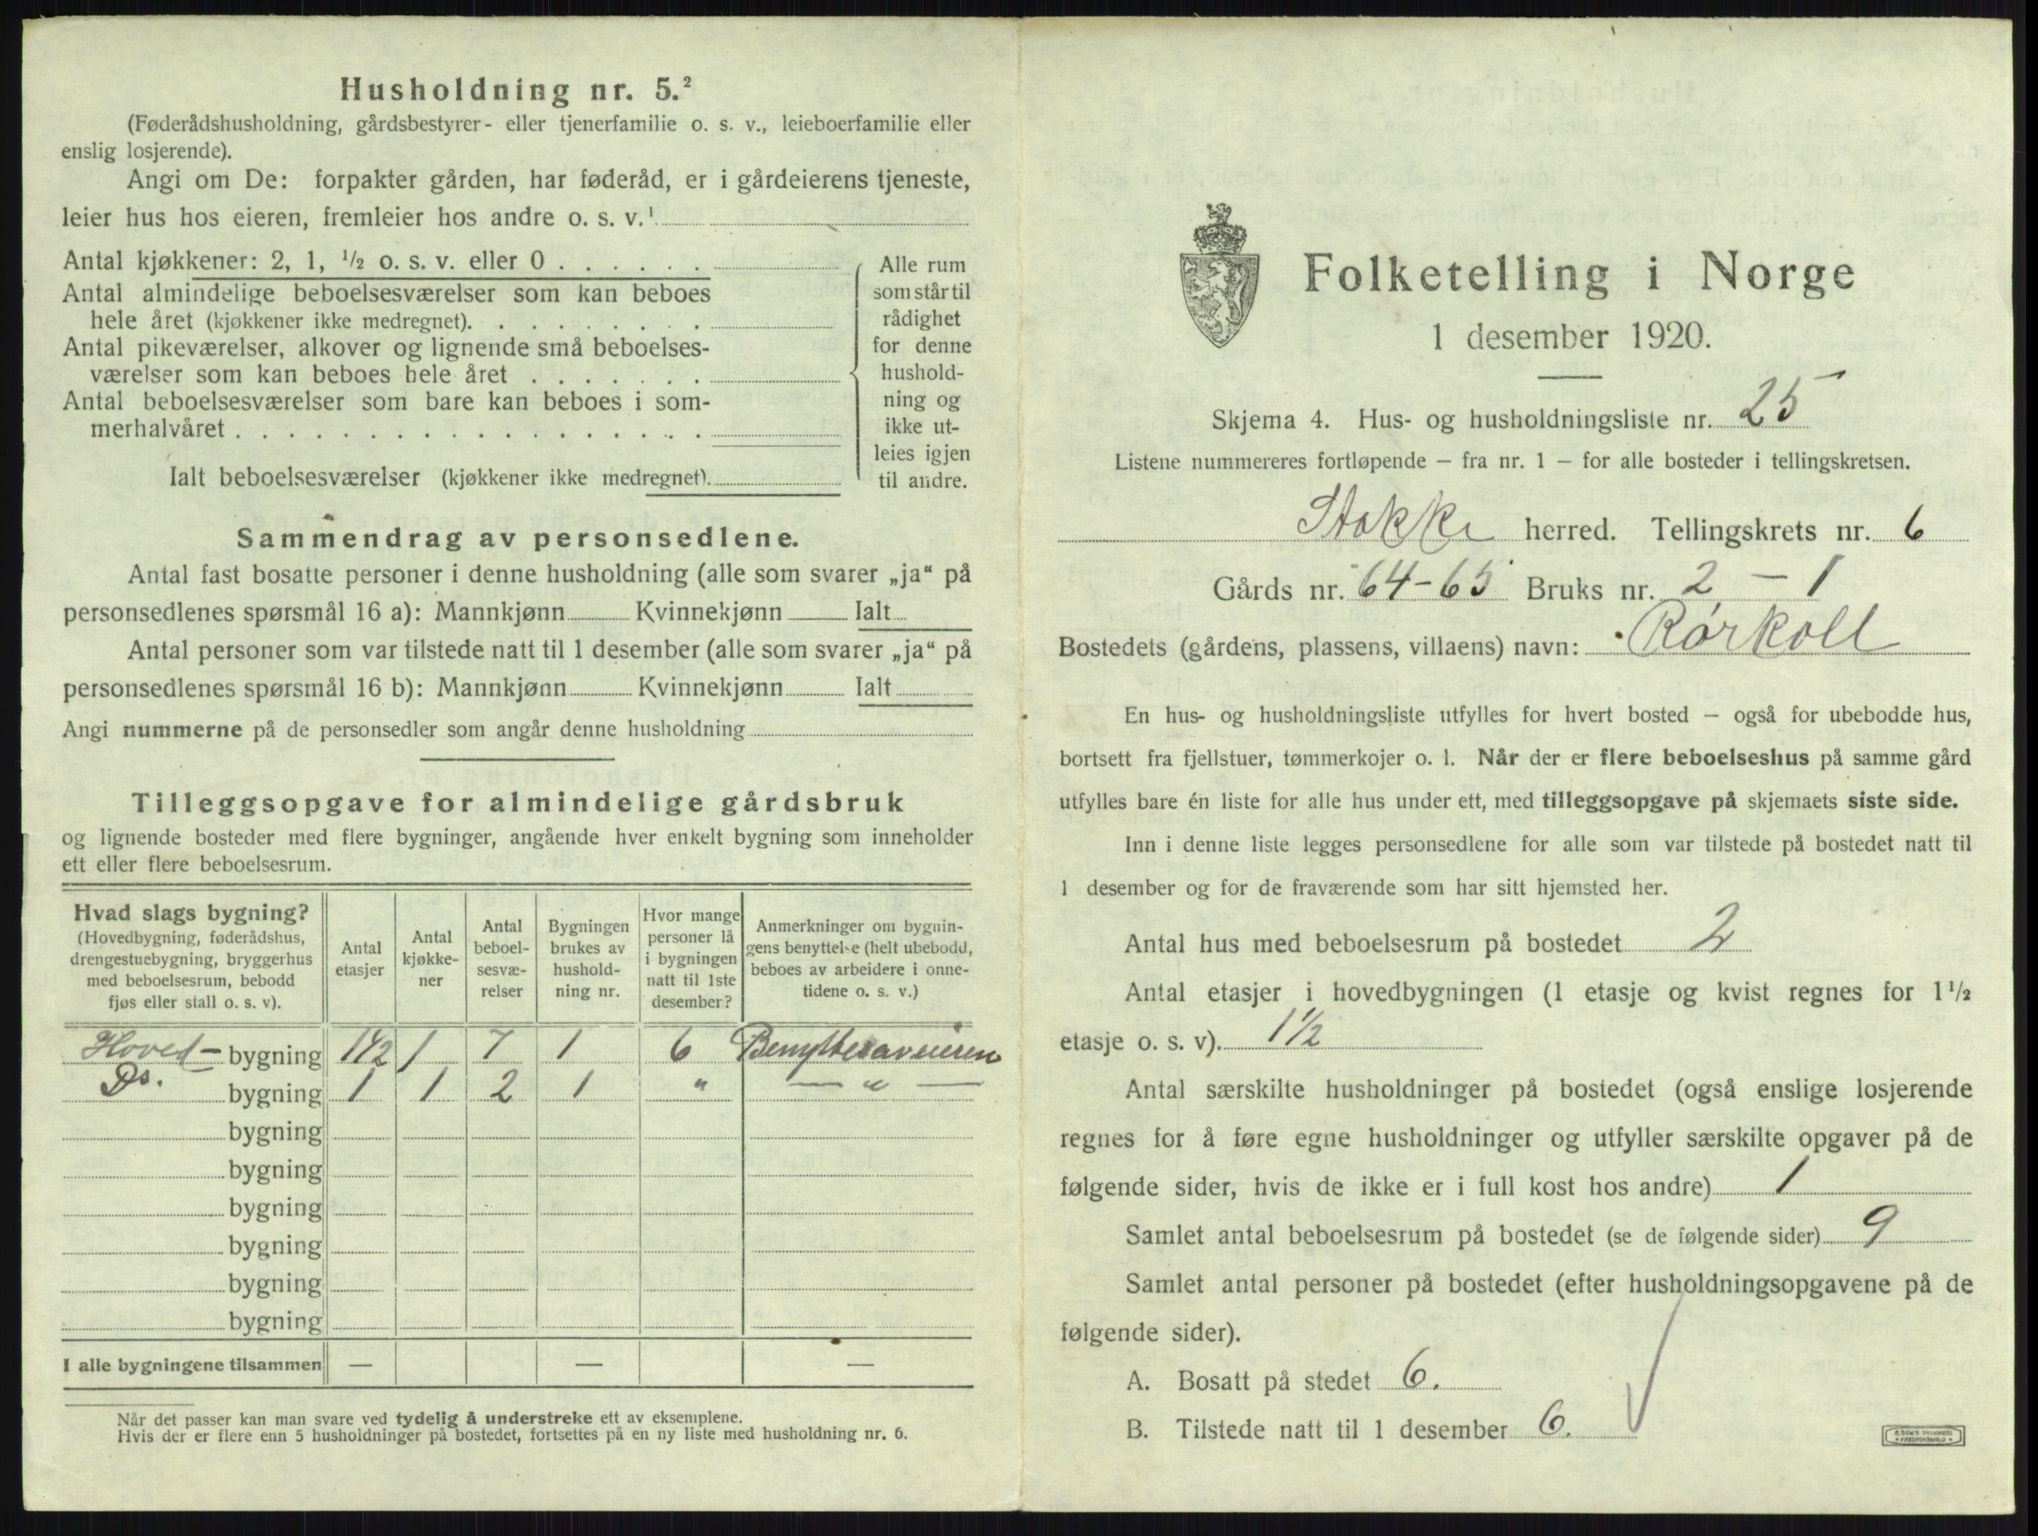 Husholdning nr. 5.²
(Føderådshusholdning, gårdsbestyrer- eller tjenerfamilie o. s. v., leieboerfamilie eller
enslig losjerende).
Angi om De: forpakter gården, har føderåd, er i gårdeierens tjeneste,
leier hus hos eieren, fremleier hos andre o. s. v.¹
Antal kjøkkener: 2, 1, ½ o. s. v. eller 0 . . . . . .
Antal almindelige beboelsesværelser som kan beboes
hele året (kjøkkener ikke medregnet). . . . . . . . .
Antal pikeværelser, alkover og lignende små beboelses-
værelser som kan beboes hele året . . . . . . .
Antal beboelsesværelser som bare kan beboes i som-
merhalvåret . . . . . . . . . . . . . . . . . .
Ialt beboelsesværelser (kjøkkener ikke medregnet).
Alle rum
som står til
rådighet
for denne
hushold-
ning og
ikke ut-
leies igjen
til andre.
Sammendrag av personsedlene.
Antal fast bosatte personer i denne husholdning (alle som svarer „ja“ på
personsedlenes spørsmål 16 a): Mannkjønn Kvinnekjønn Ialt
Antal personer som var tilstede natt til 1 desember (alle som svarer „ja“ på
personsedlenes spørsmål 16 b): Mannkjønn Kvinnekjønn Ialt
Angi nummerne på de personsedler som angår denne husholdning
Tilleggsopgave for almindelige gårdsbruk
og lignende bosteder med flere bygninger, angående hver enkelt bygning som inneholder
ett eller flere beboelsesrum.
Hvad slags bygning?
(Hovedbygning, føderådshus,
drengestuebygning, bryggerhus
med beboelsesrum, bebodd
fjøs eller stall o. s. v).
Antal
etasjer
Antal
kjøkke-
ner
Antal
beboel-
sesvæ-
relser
Bygningen
brukes av
hushold-
ning nr.
Hvor mange
personer lå
i bygningen
natt til 1ste
desember?
Anmerkninger om bygnin-
gens benyttelse (helt ubebodd,
beboes av arbeidere i onne-
tidene o. s. v.)
Hoved- bygning 1½ 1 7 1 6 Benyttes av eieren
Ds. bygning 1 1 2 1 " — " —
bygning
bygning
bygning
bygning
bygning
bygning
I alle bygningene tilsammen — — —
Når det passer kan man svare ved tydelig å understreke ett av eksemplene.
Hvis der er flere enn 5 husholdninger på bostedet, fortsettes på en ny liste med husholdning nr. 6.
Folketelling i Norge
1 desember 1920.
Skjema 4. Hus- og husholdningsliste nr. 25
Listene nummereres fortløpende – fra nr. 1 – for alle bosteder i tellingskretsen.
Stokke herred. Tellingskrets nr. 6
Gårds nr. 64-65 Bruks nr. 2 - 1
Bostedets (gårdens, plassens, villaens) navn: Rørkoll
En hus- og husholdningsliste utfylles for hvert bosted – også for ubebodde hus,
bortsett fra fjellstuer, tømmerkojer o. l. Når der er flere beboelseshus på samme gård
utfylles bare én liste for alle hus under ett, med tilleggsopgave på skjemaets siste side.
Inn i denne liste legges personsedlene for alle som var tilstede på bostedet natt til
1 desember og for de fraværende som har sitt hjemsted her.
Antal hus med beboelsesrum på bostedet 2
Antal etasjer i hovedbygningen (1 etasje og kvist regnes for 1½
etasje o. s. v). 1½
Antal særskilte husholdninger på bostedet (også enslige losjerende
regnes for å føre egne husholdninger og utfyller særskilte opgaver på de
følgende sider, hvis de ikke er i full kost hos andre) 1
Samlet antal beboelsesrum på bostedet (se de følgende sider) 9
Samlet antal personer på bostedet (efter husholdningsopgavene på de
følgende sider).
A. Bosatt på stedet 6.
B. Tilstede natt til 1 desember 6.